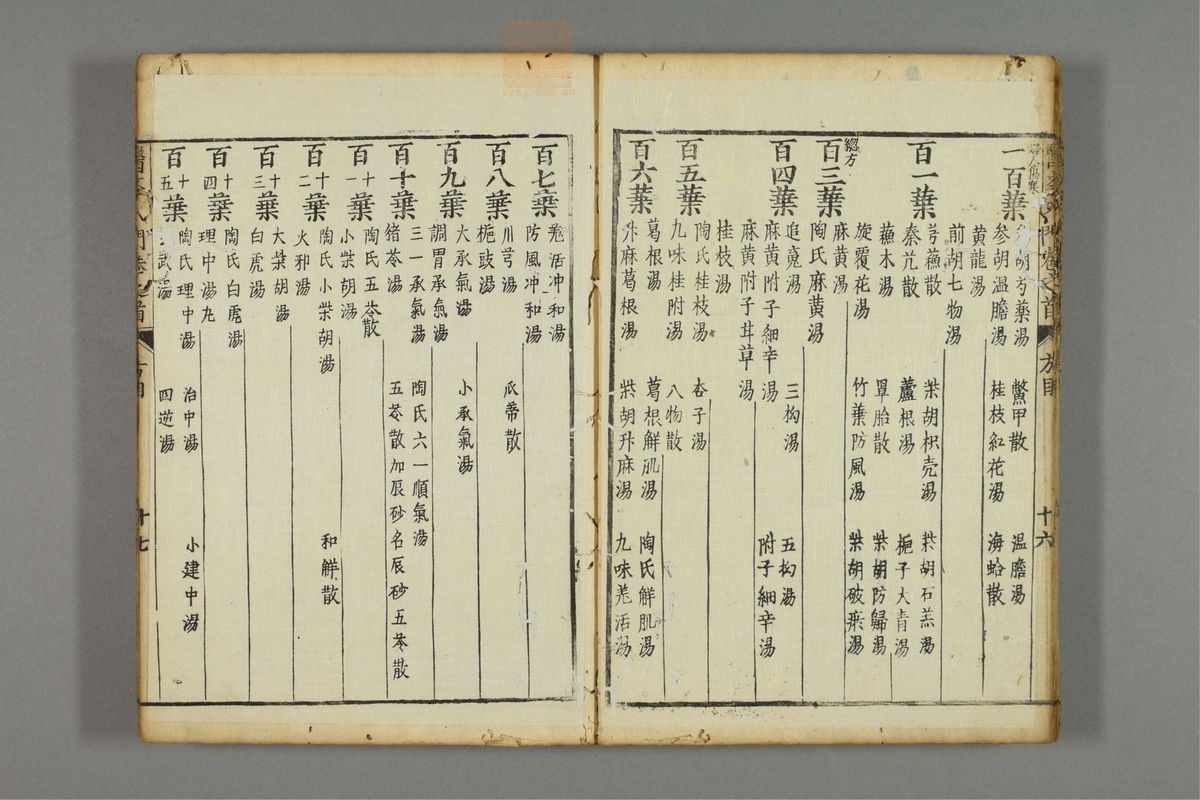 婦人傷寒
一百葉
胡芍藥湯 鱉甲散 溫膽湯
參胡溫膽湯 桂枝紅花湯 海蛤散
黃龍湯
前胡七物湯
百一葉
芎蘓散 柴胡枳壳湯 柴胡石羔湯
秦艽散 蘆根湯 梔子大青湯
蘓木湯 罩胎散 柴胡防歸湯
旋覆花湯 竹葉防風湯 柴胡破瘀湯
總方
百三葉
陶氏麻黃湯
麻黃湯
百四葉
追䰟湯 三抅湯 五抅湯
麻黃附子細辛湯 附子細辛湯
麻黃附子耳草湯
桂枝湯
百五葉
陶氏桂枝湯 杏子湯
九味桂附湯 八物散
百六葉
葛根湯 葛根解肌湯 陶氏解肌湯
升麻葛根湯 柴胡升麻湯 九味羗活湯
方目
十六
百七葉
羗活冲和湯
防風冲和湯
百八葉
川芎湯 瓜蒂散
梔豉湯
百九葉
大承氣湯 小承氣湯
調胃承氣湯
百十葉
三一承氣湯 陶氏六一順氣湯
猪苓湯 五苓散加辰砂名辰砂五苓散
百十一葉
陶氏五苓散
小柴胡湯
百十二葉
陶氏小柴胡湯 和解散
火邪湯
百十三葉
大柴胡湯
白虎湯
百十四葉
陶氏白虎湯
理中湯丸
百十五葉
陶氏理中湯 治中湯 小建中湯
武湯 四逆湯
門卷之首
十七